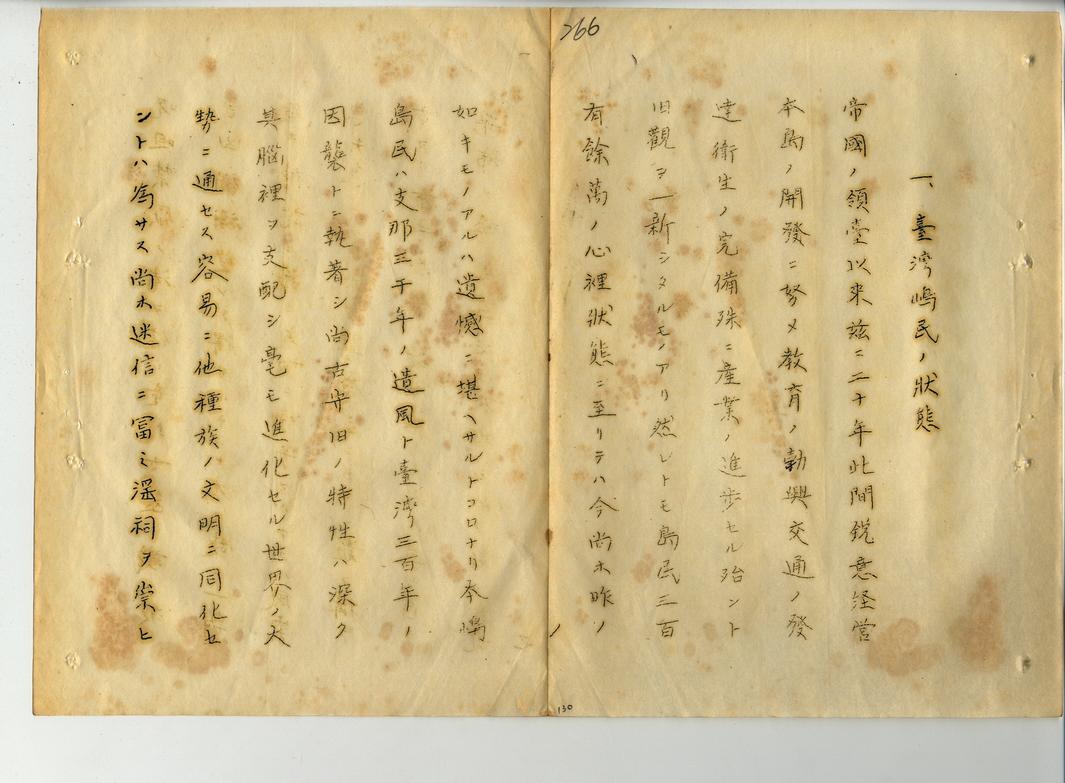 266
一、臺湾嶋民ノ狀態
帝國ノ領臺以来玆ニ二十年此間銳意経営
本島ノ開發ニ努メ教育ノ勃興交通ノ發
達衛生ノ完備殊ニ産業ノ進歩セル殆ント
旧觀ヲ一新シタルモノアリ然レトモ島民三百
有餘萬ノ心裡狀態ニ至リテハ今尚ホ昨ノ
如キモノアルハ遺憾ニ堪ヘサルトコロナリ本嶋
島民ハ支那三千年ノ遺風ト臺湾三百年ノ
因襲トニ執著シ尚古守旧ノ特性ハ深ク
其腦裡ヲ支配シ毫モ進化セル世界ノ大
勢ニ通セス容易ニ他種族ノ文明ニ同化セ
ントハ為サス尚ホ迷信ニ冨ミ淫祠ヲ崇ヒ
130